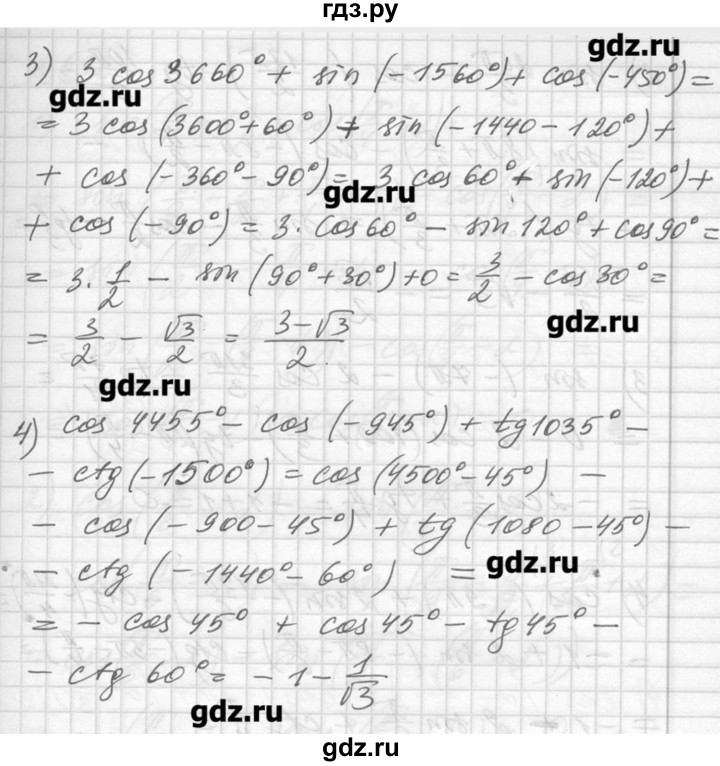 гдз.ру
gdz.ru
3) 3 cos 3660° + sin (-1560°) + cos (-450°) =
gdz.ru
= 3 cos (3600° + 60°) + sin (-1440 - 120°) +
+ cos (-360° - 90°) = 3 cos 60° + sin (-120°) +
gdz.ru
+ cos (-90°) = 3 · cos 60° - sin 120° + cos 90° =
= 3 · 1/2 - sin (90° + 30°) + 0 = 3/2 - cos 30° =
gdz.ru
= 3/2 - √3/2 = (3-√3)/2
gdz.ru
4) cos 4455° - cos (-945°) + tg 1035° -
- ctg (-1500°) = cos (4500° - 45°) -
- cos (-900 - 45°) + tg (1080 - 45°) -
gdz.ru
- ctg (-1440° - 60°) =
= - cos 45° + cos 45° - tg 45° -
- ctg 60° = -1 - 1/√3
gdz.ru
gdz.ru